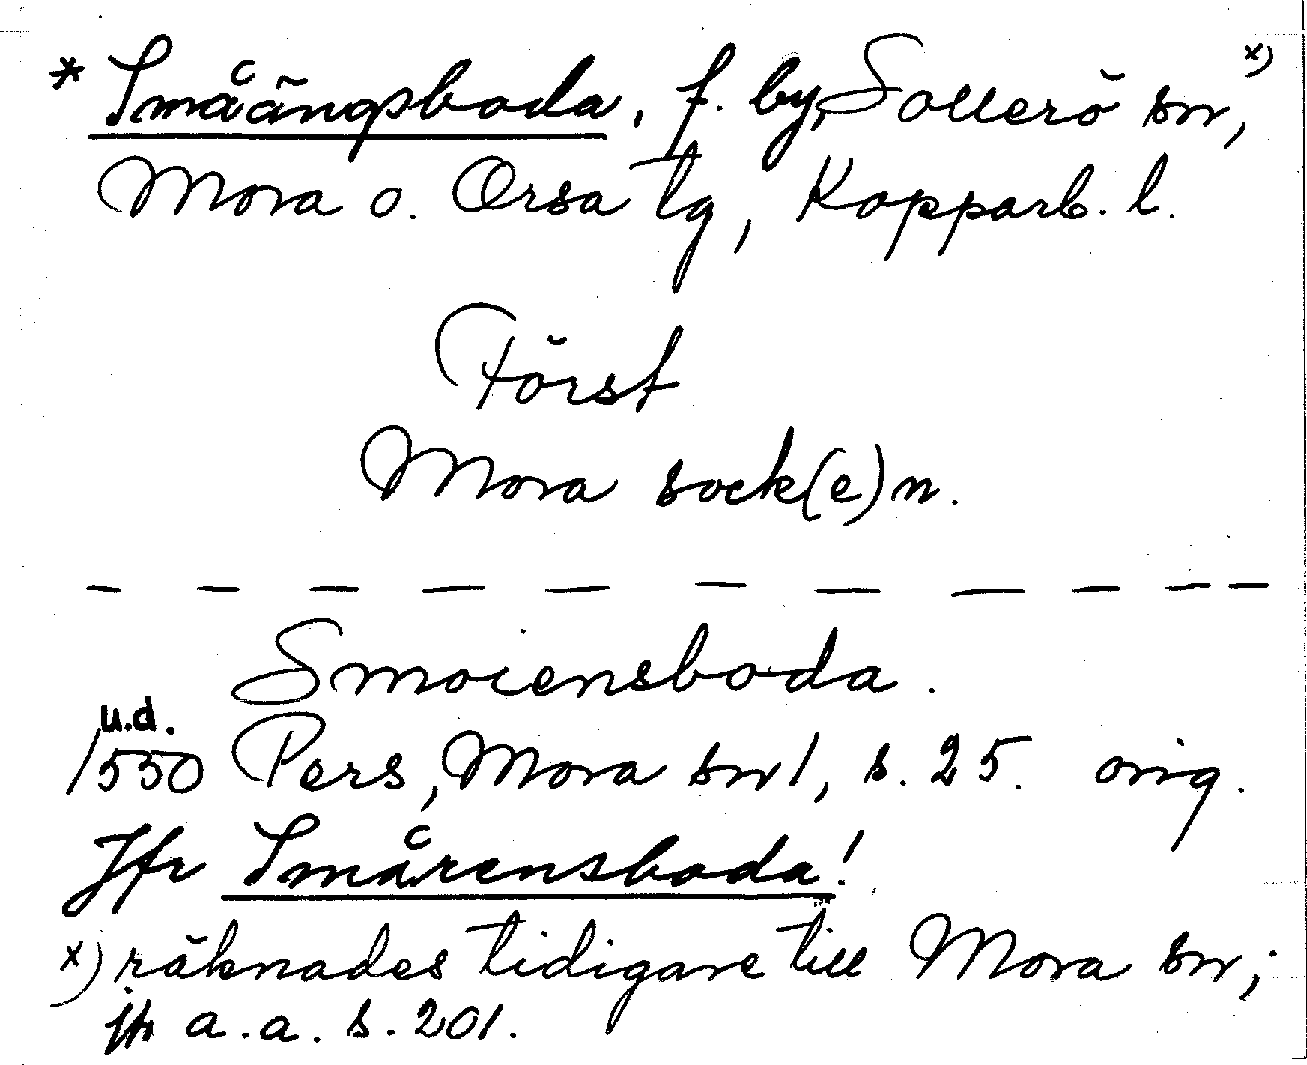 * Småängsboda, f. by, Sollerö sn, x)
Mora o. Orsa tg, Kopparb. l.
Först
Mora sock(e)n.
Smoiensboda.
u.d.
/550 Pers, Mora sn 1, s. 25. orig.
Jfr Smårensboda!
x) räknades tidigare till Mora sn;
jfr a.a. s. 201.